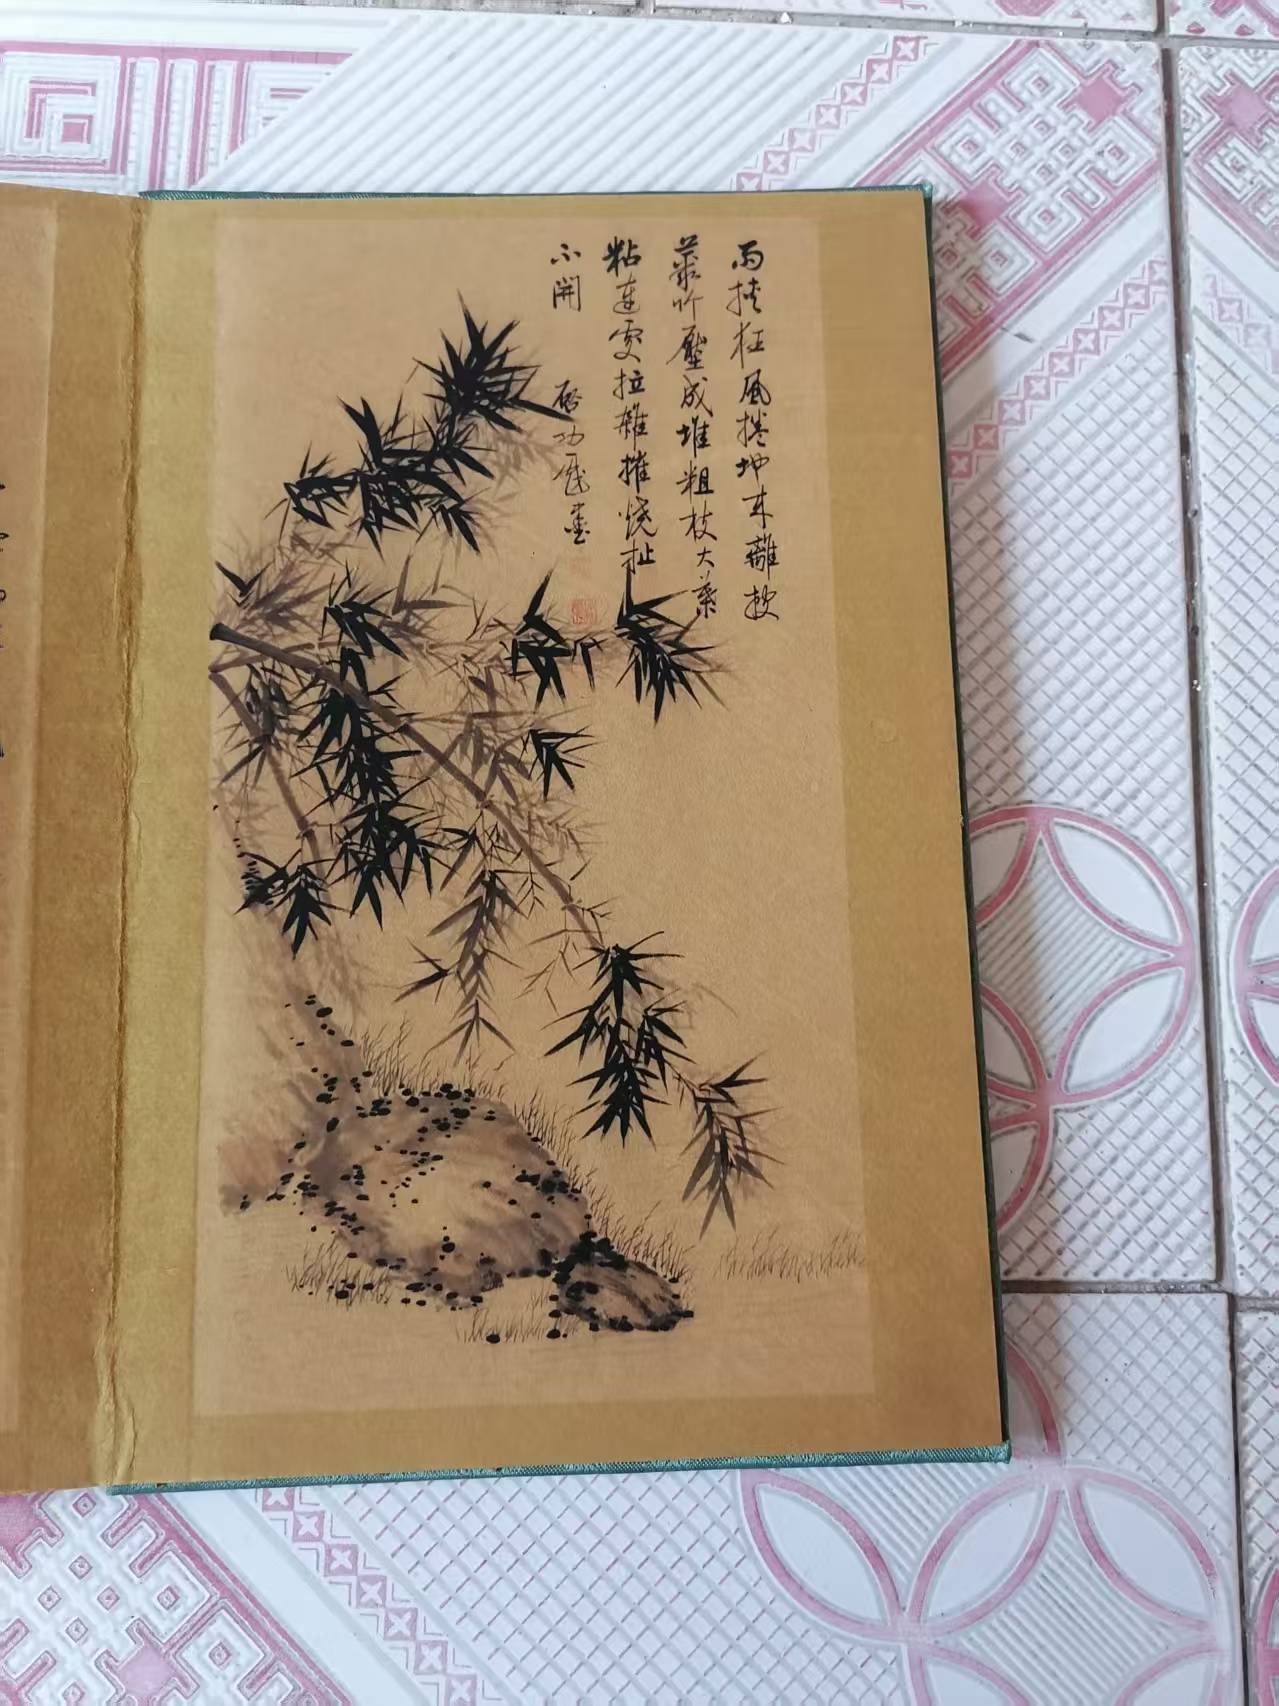 雨挟狂风捲地来離披
叢竹壓成堆粗枝大葉
粘連雯拉雜摧燒扯
不開
啓功戲畫